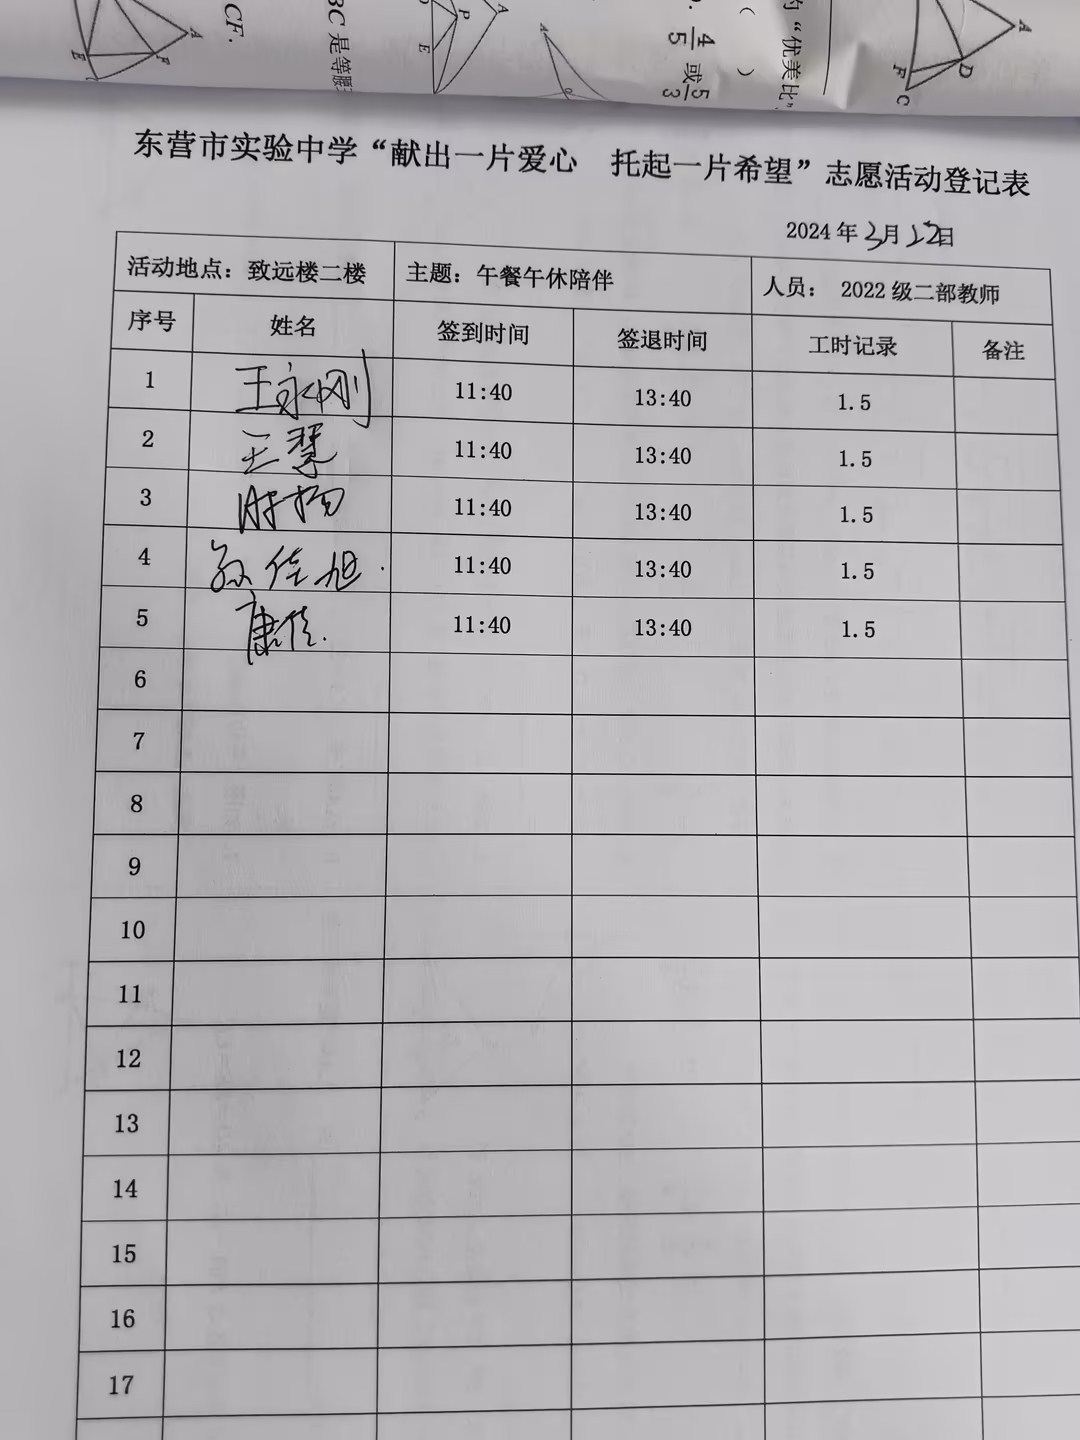 CF.
BC 是等腰三
4/5 或 5/3
( )
的“优美比”
东营市实验中学“献出一片爱心 托起一片希望”志愿活动登记表
2024 年 3月12日
活动地点：致远楼二楼 主题：午餐午休陪伴 人员： 2022 级二部教师
序号 姓名 签到时间 签退时间 工时记录 备注
1 王永刚 11:40 13:40 1.5
2 王慧 11:40 13:40 1.5
3 11:40 13:40 1.5
4 孙佳旭 11:40 13:40 1.5
5 康佳 11:40 13:40 1.5
6
7
8
9
10
11
12
13
14
15
16
17